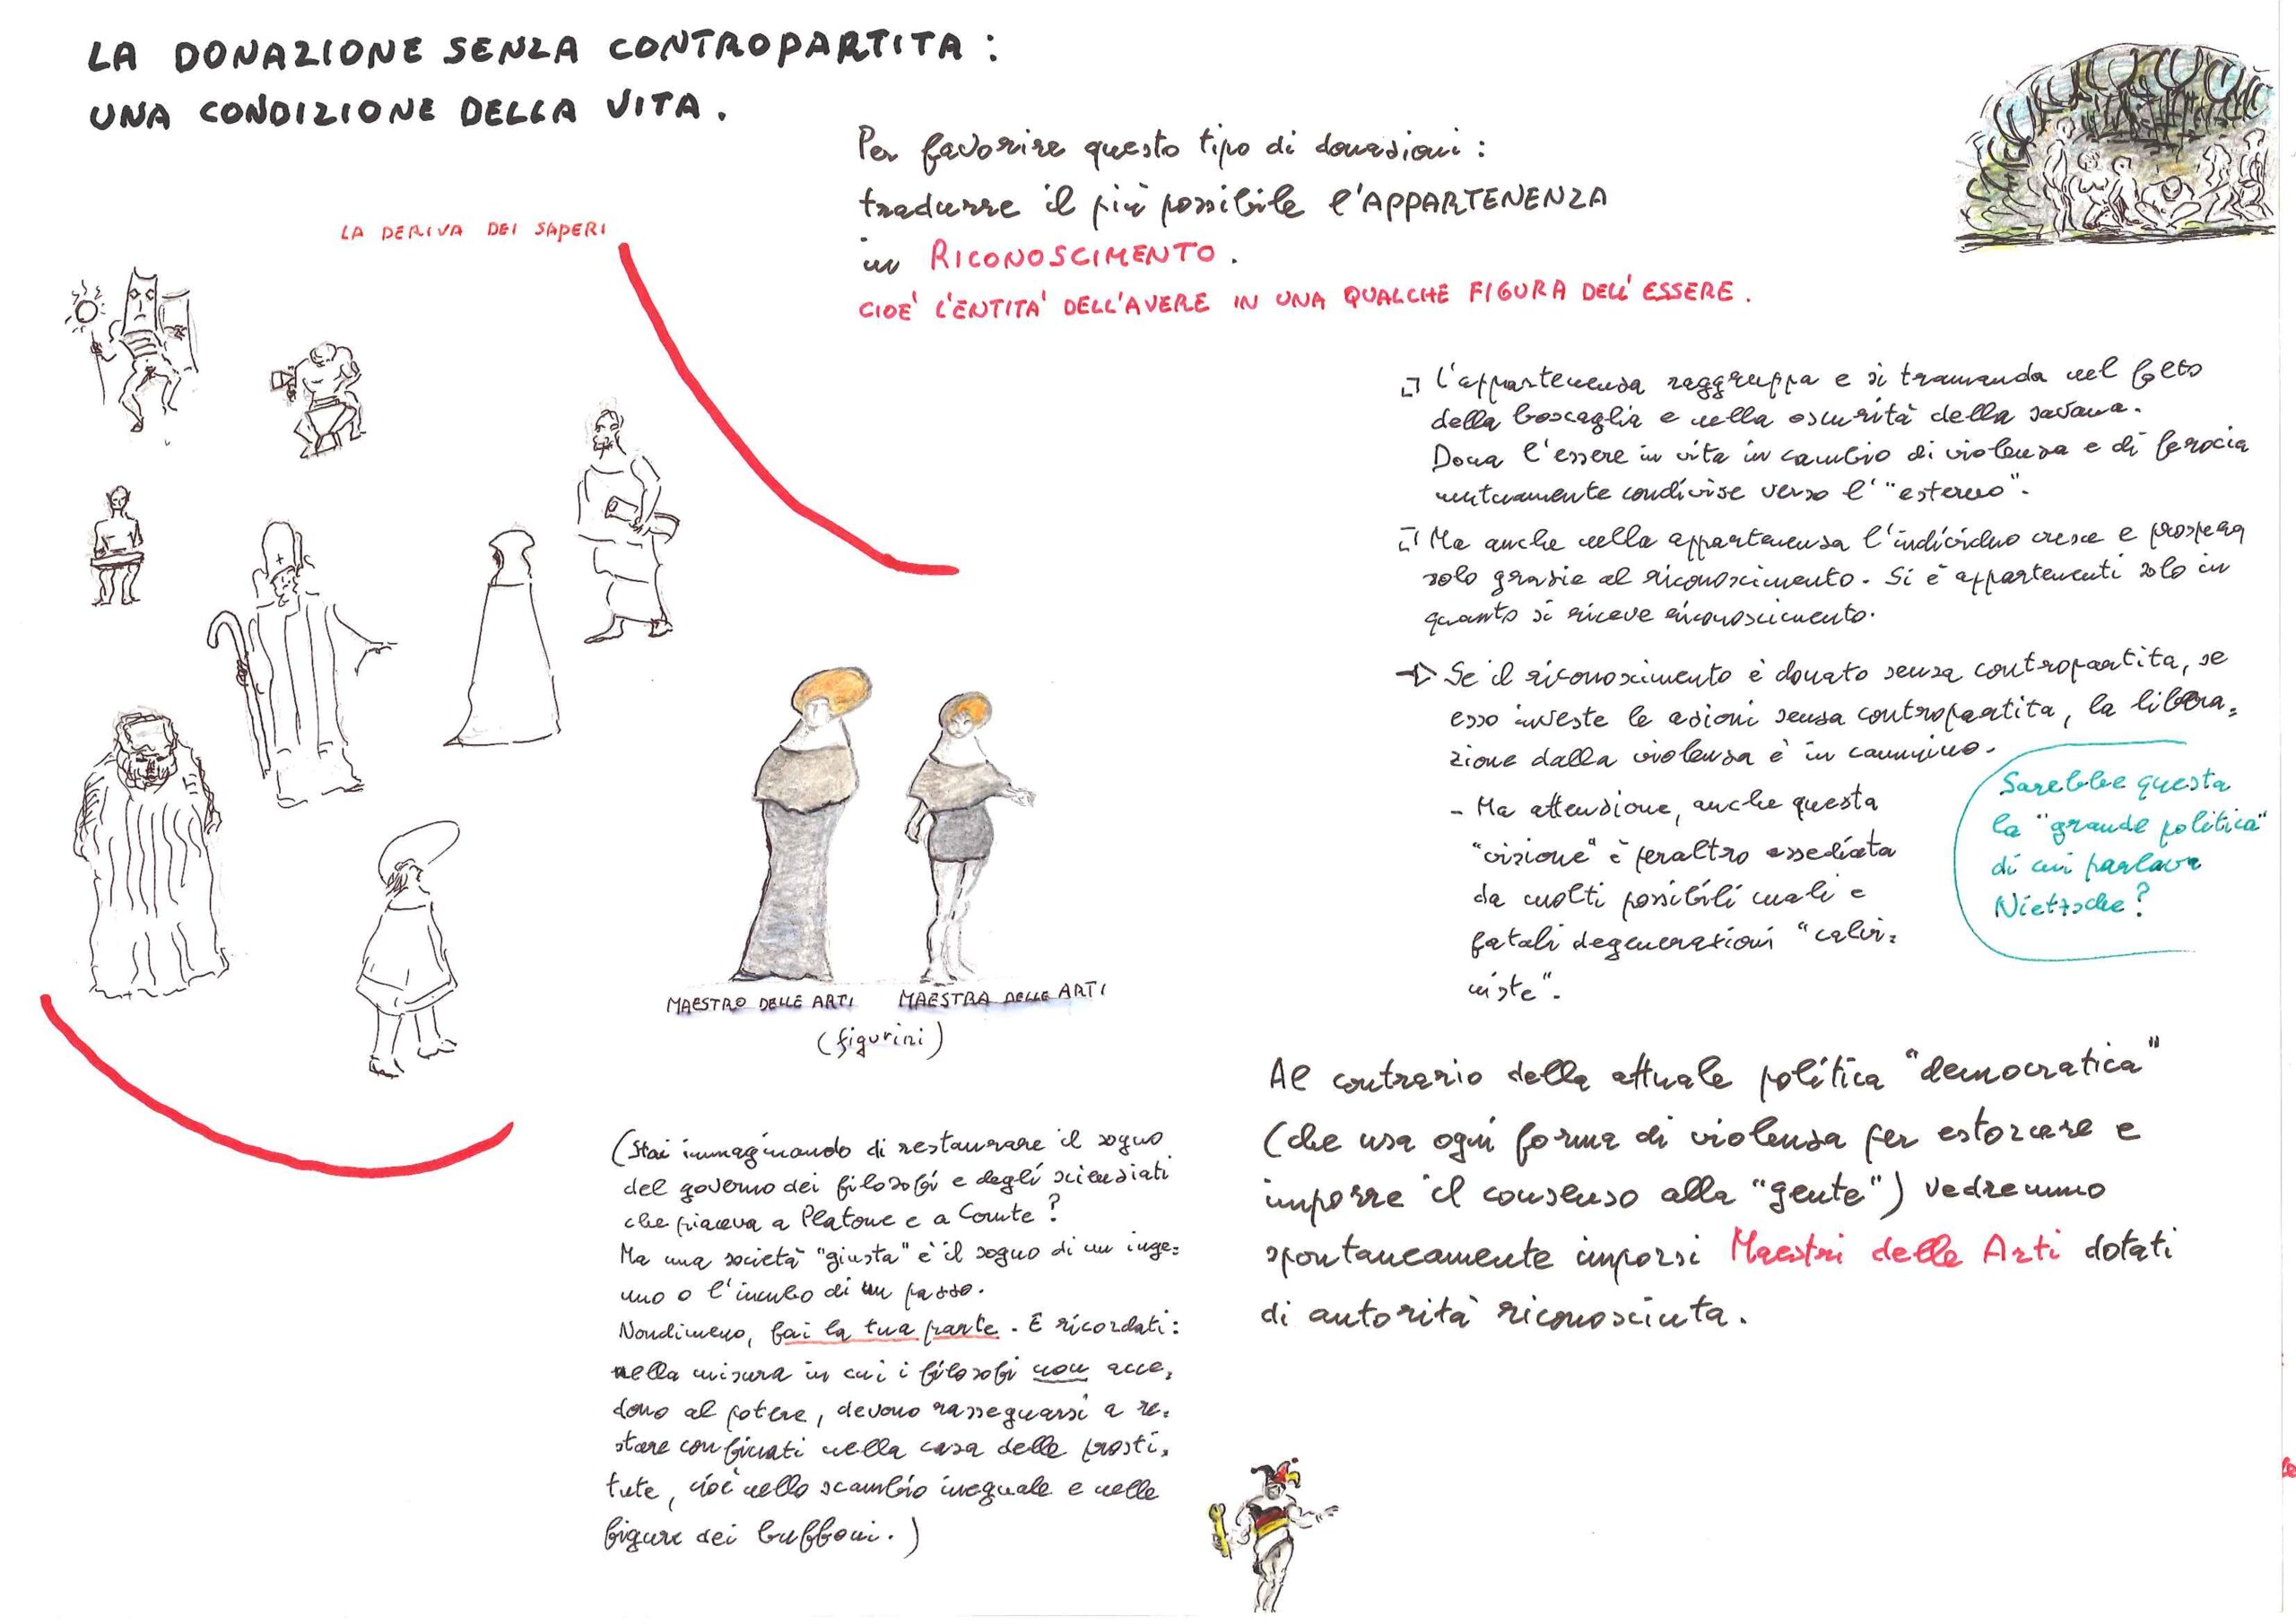 LA DONAZIONE SENZA CONTROPARTITA :
UNA CONDIZIONE DELLA VITA .
Per favorire questo tipo di donazioni :
tradurre il più possibile l'APPARTENENZA
in RICONOSCIMENTO .
CIOE' L'ENTITA' DELL'AVERE IN UNA QUALCHE FIGURA DELL'ESSERE .
LA DERIVA DEI SAPERI
L'appartenenza raggruppa e si tramanda nel folto
della boscaglia e nella oscurità della savana.
Dona l'essere in vita in cambio di violenza e di ferocia
mutuamente condivise verso l' "esterno".
Ma anche nella appartenenza l'individuo cresce e prospera
solo grazie al riconoscimento. Si è appartenenti solo in
quanto si riceve riconoscimento.
Se il riconoscimento è donato senza contropartita, se
esso investe le azioni senza contropartita, la libera=
zione dalla violenza è in cammino.
- Ma attenzione, anche questa
"visione" è peraltro assediata
da molti possibili mali e
fatali degenerazioni "calvi=
niste".
Sarebbe questa
la "grande politica"
di cui parlava
Nietzsche?
MAESTRO DELLE ARTI
MAESTRA DELLE ARTI
(figurini)
Al contrario della attuale politica "democratica"
(che usa ogni forma di violenza per estorcere e
imporre il consenso alla "gente") vedremmo
spontaneamente imporsi Maestri delle Arti dotati
di autorità riconosciuta.
(Stai immaginando di restaurare il sogno
del governo dei filosofi e degli scienziati
che piaceva a Platone e a Comte?
Ma una società "giusta" è il sogno di un inge=
nuo o l'incubo di un pazzo.
Nondimeno, fai la tua parte. E ricordati:
nella misura in cui i filosofi non acce=
dono al potere, devono rassegnarsi a re=
stare confinati nella casa delle prosti=
tute, cioè nello scambio ineguale e nelle
figure dei buffoni.)